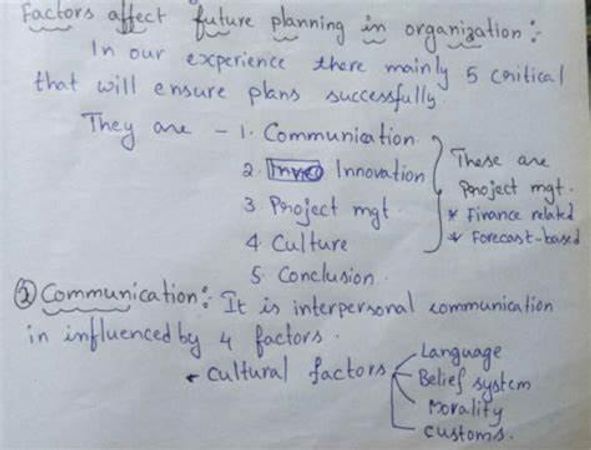 Factors affect future planning in organization :-
In our experience there mainly 5 critical
that will ensure plans successfully
They are - 1. Communication
2. Innovation
3 Project mgt
4 Culture
5. Conclusion.
These are
project mgt.
* Finance related
* Forecast-based
② Communication :- It is interpersonal communication
in influenced by 4 factors.
- cultural factors
Language
Belief system
Morality
customs.